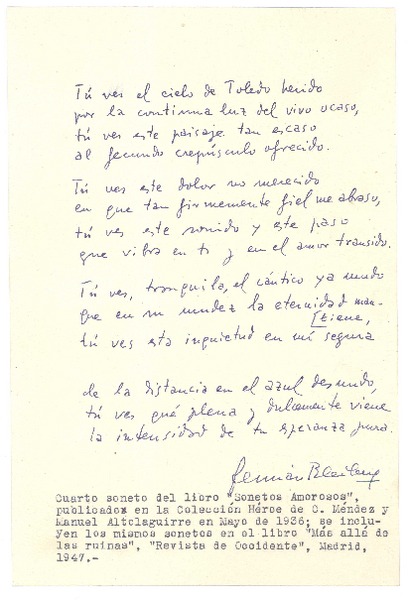 Tú ves el cielo de Toledo herido
por la continua luz del vivo ocaso,
tú ves este paisaje tan escaso
al fecundo crepúsculo ofrecido.
Tú ves este dolor no merecido
en que tan firmemente fiel me abraso,
tú ves este sonido y este paso
que vibra en ti y en el amor transido.
Tú ves, tranquila, el cántico ya mudo
que en su mudez la eternidad man-
[tiene,
tú ves esta inquietud en mí segura
de la distancia en el azul desnudo,
tú ves qué plena y dulcemente viene
la intensidad de tu esperanza pura.
Germán Bleiberg
Cuarto soneto del libro "Sonetos Amorosos",
publicados en la Colección Héroe de C. Méndez y
Manuel Altolaguirre en Mayo de 1936; se inclu-
yen los mismos sonetos en el libro "Más allá de
las ruinas", "Revista de Occidente", Madrid,
1947.-